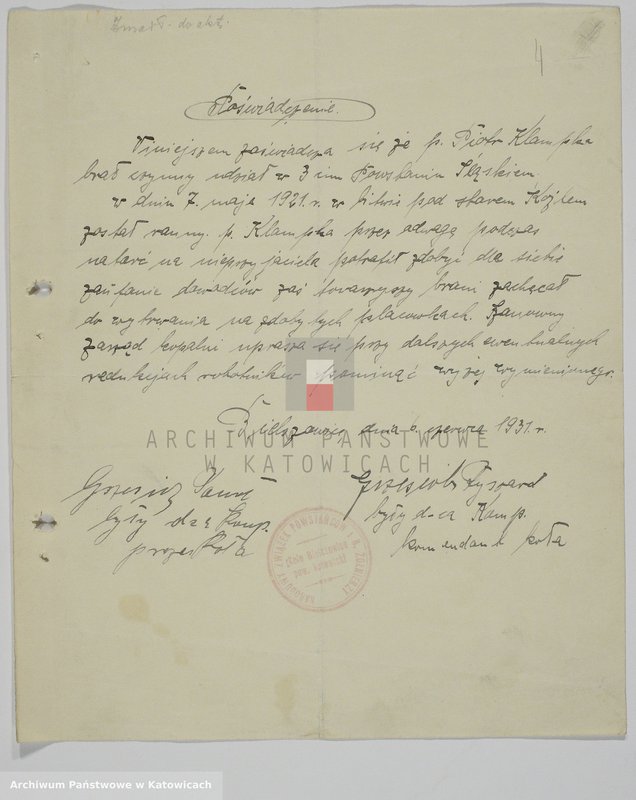 4
Poświadczenie.
Niniejszem zaświadcza się że p. Piotr Klampka
brał czynny udział w 3 im Powstaniu Śląskiem.
w dniu 7. maja 1921. r. w bitwie pod starem Koźlem
został ranny. p. Klampka przez odwagę podczas
natarć na nieprzyjaciela potrafił zdobyć dla siebie
zaufanie dowódców zaś towarzyszy broni zachęcał
do wytrwania na zdobytych placówkach. Szanowny
zarząd kopalni uprasza się przy dalszych ewentualnych
redukcjach robotników pominąć wyżej wymienionego.
dnia 6. czerwca 1931. r.
ARCHIWUM PAŃSTWOWE
W KATOWICACH
były d-ca Komp.
prezes Koła
Ryszard
były d-ca Komp.
komendant koła
NARODOWY ZWIĄZEK POWSTAŃCÓW I B. ŻOŁNIERZY
Archiwum Państwowe w Katowicach